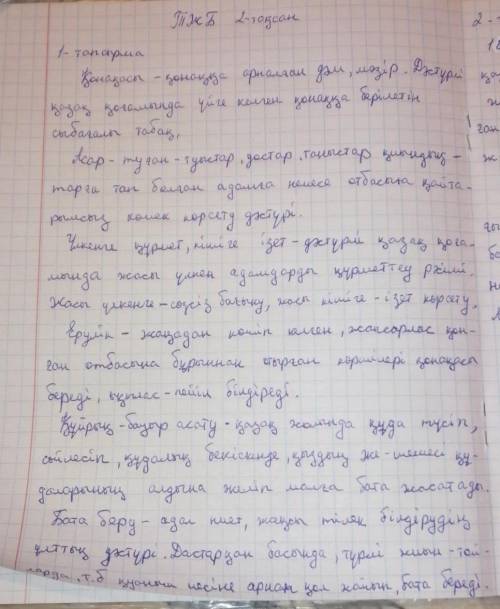 ТЖБ 2-тоқсан
1-тапсырма
Қонақасы - қонаққа арналған дәм, мәзір. Дәстүрлі
қазақ қоғамында үйге келген қонаққа берілетін
сыбағалы табақ.
Асар - туған-туыстар, достар, таныстар қиындық-
тарға тап болған адамға немесе отбасына қайта-
рымсыз көмек көрсету дәстүрі.
Үлкенге құрмет, кішіге ізет - дәстүрлі қазақ қоға-
мында жасы үлкен адамдарды құрметтеу рәсімі.
Жасы үлкенге - сөзсіз бағыну, жасы кішіге - ізет көрсету.
Ерулік - жаңадан көшіп келген, жансарлас қон-
ған отбасына бұрыннан отырған көршілері қонақасы
береді, ықылас-пейіл білдіреді.
Құйрық-бауыр асату - қазақ жолында құда түсіп,
сөйлесіп, құдалық бекіскенде, қыздың же-шешесі құ-
даларының алдына келіп малға бата жасатады.
Бата беру - адал ниет, жақсы тілек білдірудің
ұлттық дәстүрі. Дастарқан басында, түрлі жиын-той-
ларда, т.б қуаныш иесіне арнап қол жайып, бата береді.
2-
1)
қа
ж
ған
ж
ба